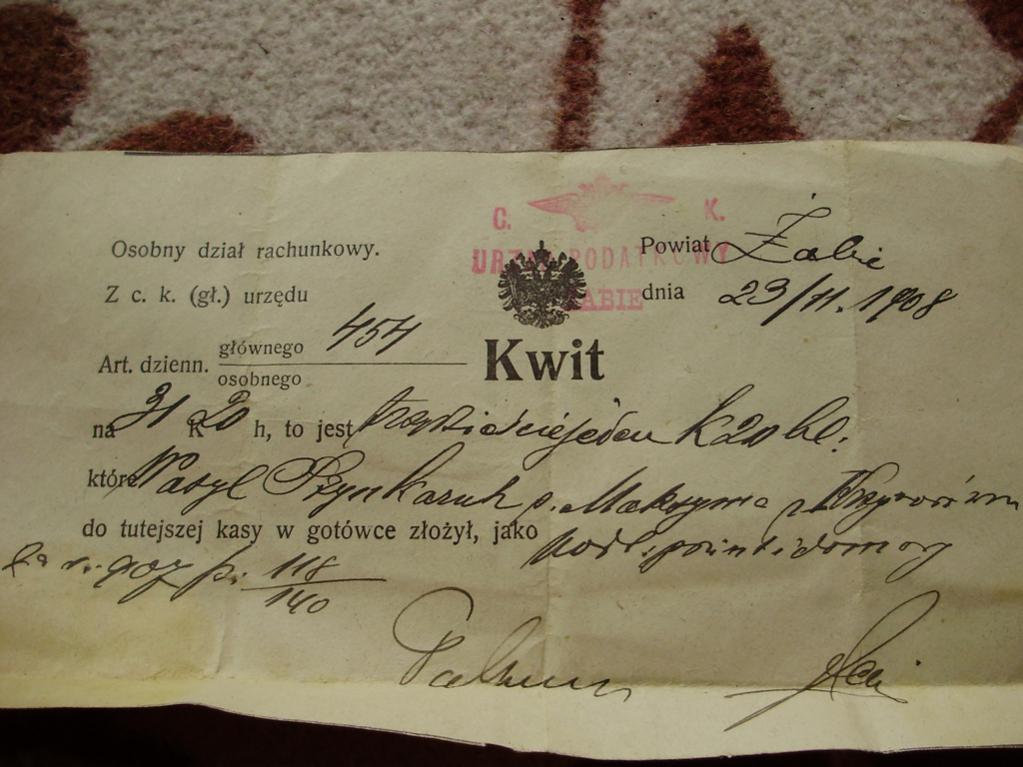 C. K.
URZĄD PODATKOWY
ŻABIE
Powiat Żabie
dnia 23/11. 1908
Osobny dział rachunkowy.
Z c. k. (gł.) urzędu
Art. dzienn. głównego 454
osobnego
Kwit
na 31 K 20 h, to jest trzydzieściejeden K 20 hl.
które Wasyl s. Maksyma z
do tutejszej kasy w gotówce złożył, jako podt. grunt i domowy
za r. 907 p. 118/140